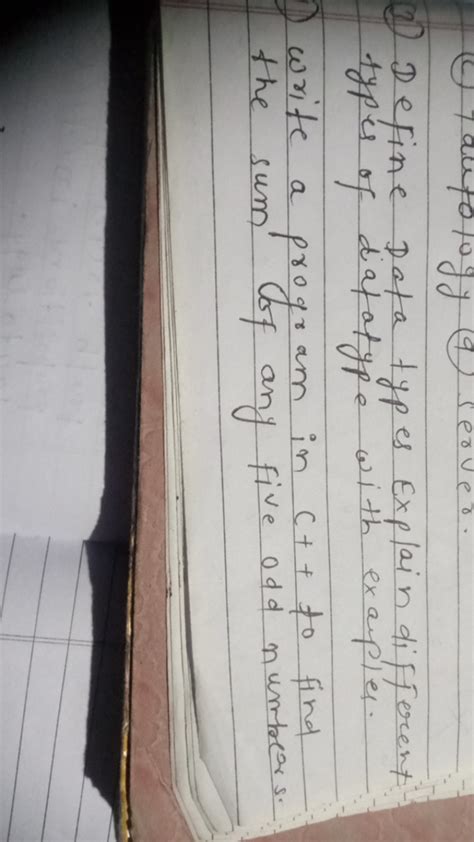 (c) Tautology (9) server.
(8) Define Data types Explain different
types of datatype with exaples.
write a program in C++ to find
the sum of any five odd numbers.